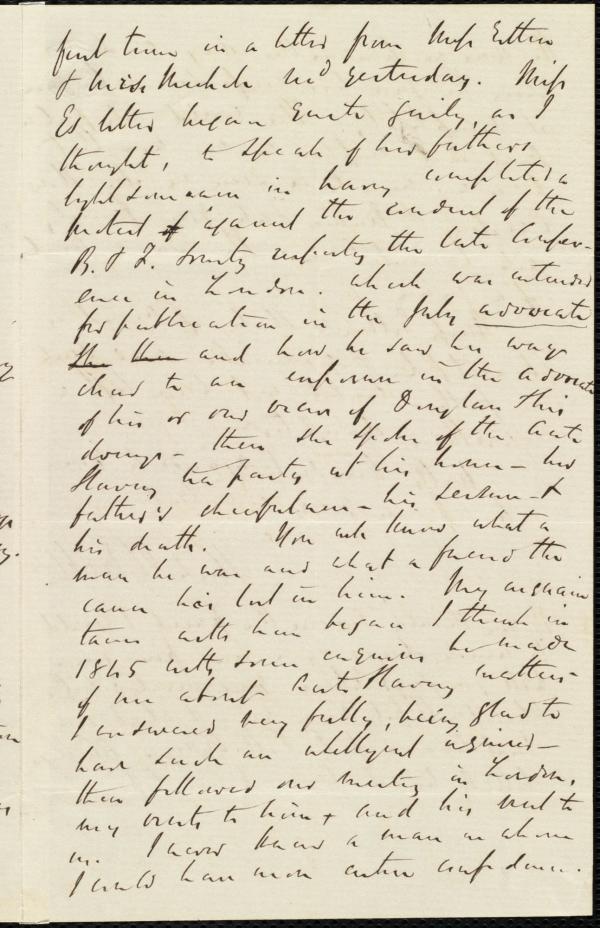 first time in a letter from Miss Estlin
& Miss Michell rec'd yesterday. Miss
Es letter began quite gaily, as I
thought, to speak of her father's
lightsomeness in having completed a
protest against the conduct of the
B. & F. Society respecting the late Confer-
ence in London. which was intended
for publication in the July advocate
and how he saw his way
clear to an exposure in the advocate
of his or our views of Douglass & his
doings - then she spoke of the Anti
Slavery tea party at his house - her
father's cheerfulness - his seizure - &
his death. You well know what a
man he was and what a friend the
cause has lost in him. My acquain
tance with him began I think in
1845 with some enquiries he made
of me about Anti Slavery matters -
I answered very fully, being glad to
have such an intelligent inquirer -
then followed our meeting in London,
my visits to him & and his visit to
us. I never knew a man in whom
I could have more entire confidence.